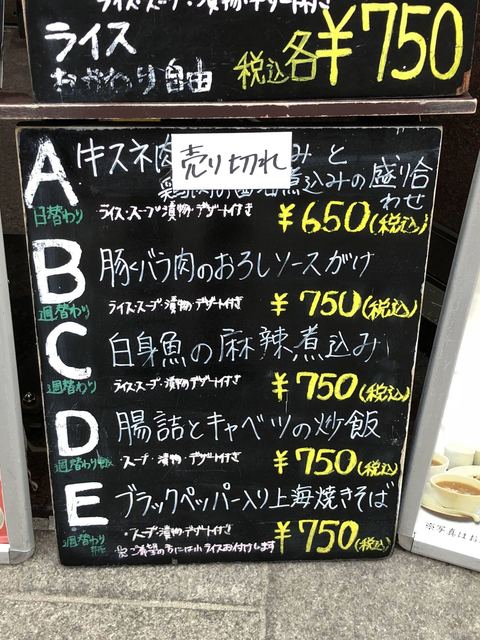 ライス・スープ・漬物・デザート付き
ライス
おかわり自由
税込各¥750
A
牛スネ肉
売り切れ
みと
煮込みの盛り合わせ
日替わり
ライス・スープ・漬物・デザート付き
¥650(税込)
B
豚バラ肉のおろしソースがけ
週替わり
ライス・スープ・漬物・デザート付き
¥750(税込)
C
白身魚の麻辣煮込み
週替わり
ライス・スープ・漬物・デザート付き
¥750(税込)
D
腸詰とキャベツの炒飯
週替わり
・スープ・漬物・デザート付き
¥750(税込)
E
ブラックペッパー入り上海焼きそば
週替わり
・スープ・漬物・デザート付き
※ご希望の方には小ライスお付けします
¥750(税込)
※写真はお